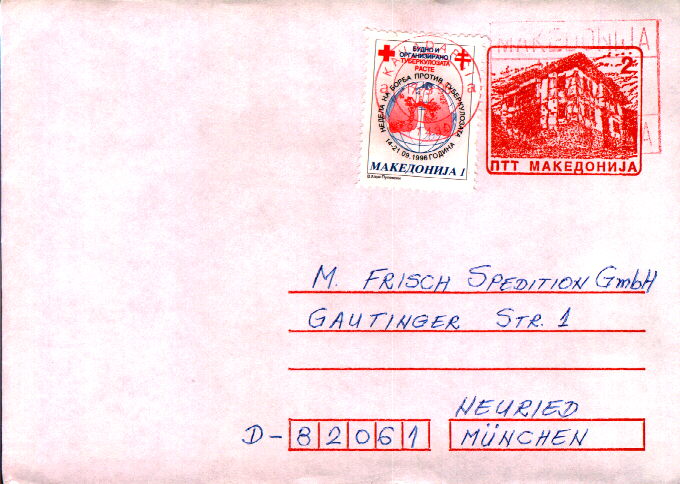 БУДНО И
ОРГАНИЗИРАНО
ТУБЕРКУЛОЗАТА
РАСТЕ
НЕДЕЛА НА БОРБА ПРОТИВ ТУБЕРКУЛОЗАТА
14-21.09.1996 ГОДИНА
МАКЕДОНИЈА 1
MAKEDONIJA
2
ПТТ МАКЕДОНИЈА
M. FRISCH SPEDITION GmbH
GAUTINGER STR. 1
NEURIED
D-82061 MÜNCHEN